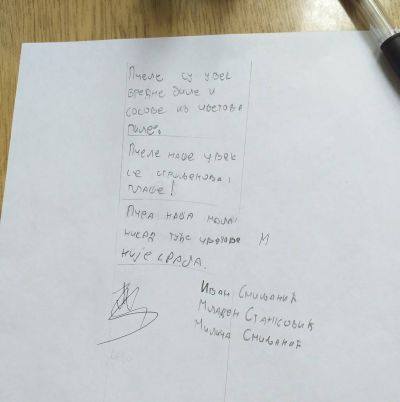 Пчеле су увек
вредне биле и
сокове из цветова
пиле.
Пчеле наше увек
се стршљенова
плаше!
Пчела наша мала
никад туђе
није крала.
Иван Смиљанић
Младен Станковић
Милица Смиљанић